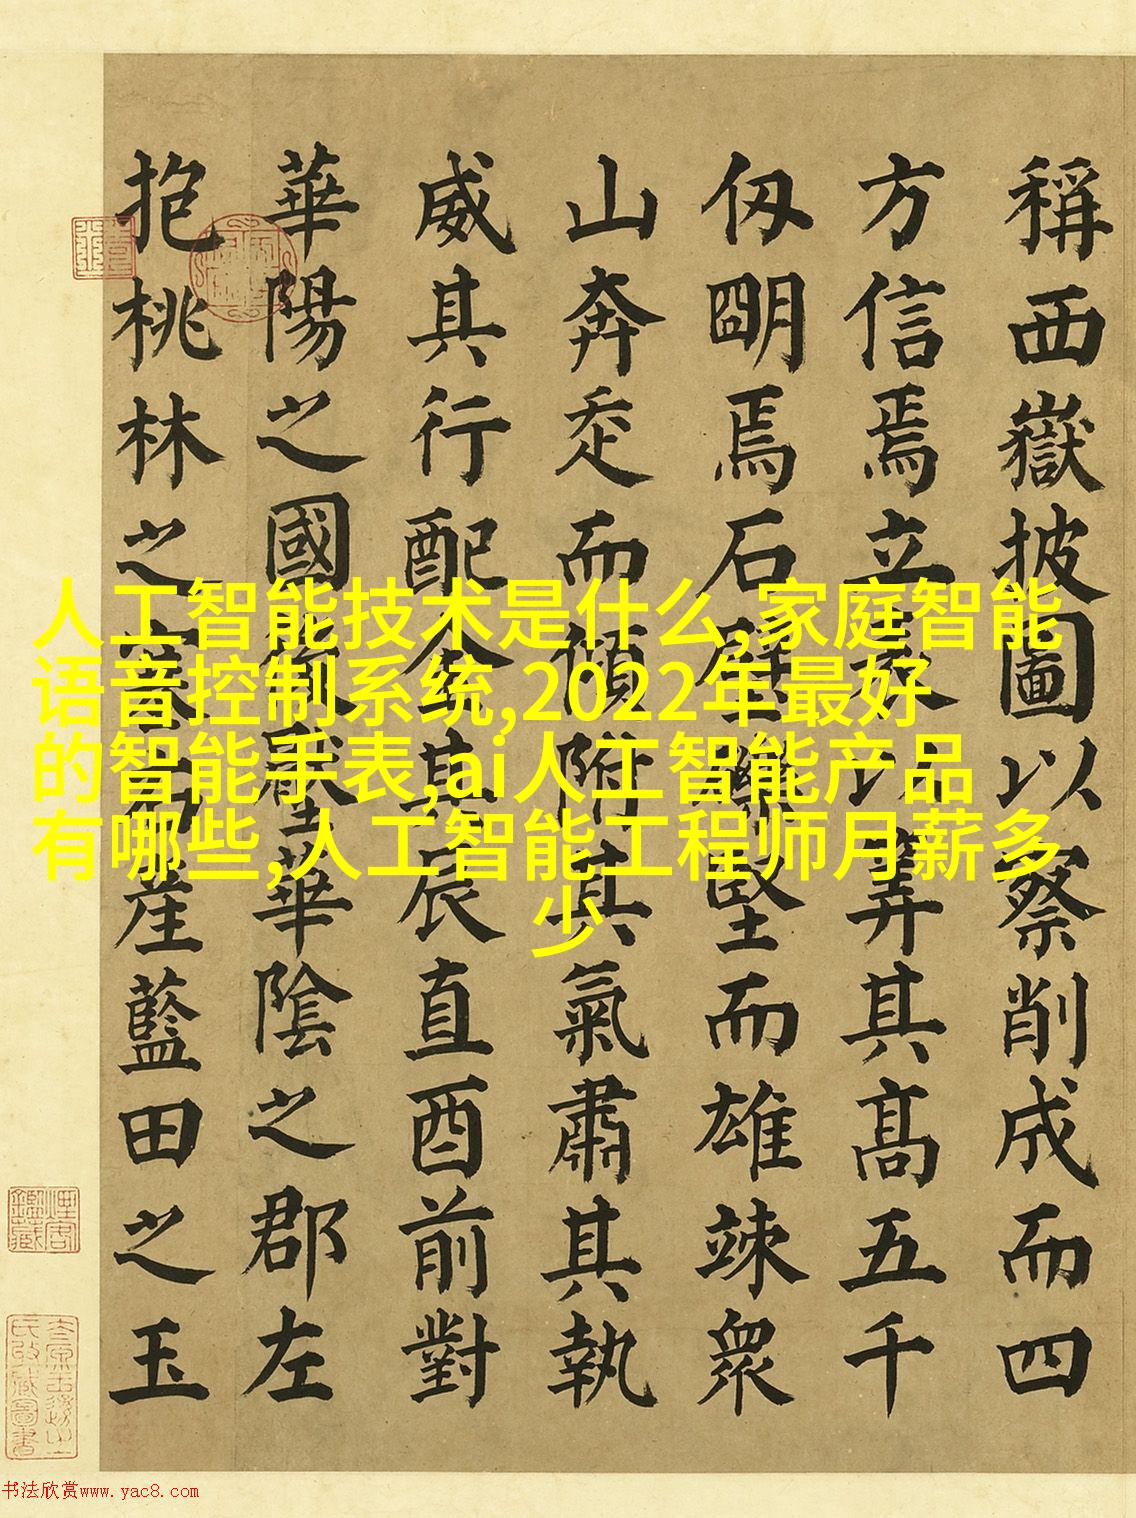 稱西嶽披圖以察削成而四
方信焉立表以筭其髙五千
仭朙焉石壁堅而雄竦衆
山奔走而傾附其氣肅其執
威其行配金其辰直酉前對
華陽之國壓華陰之郡左
抱桃林之塞產藍田之玉
人工智能技术是什么,家庭智能
语音控制系统,2022年最好
的智能手表,ai人工智能产品
有哪些,人工智能工程师月薪多
少
书法欣赏www.yac8.com